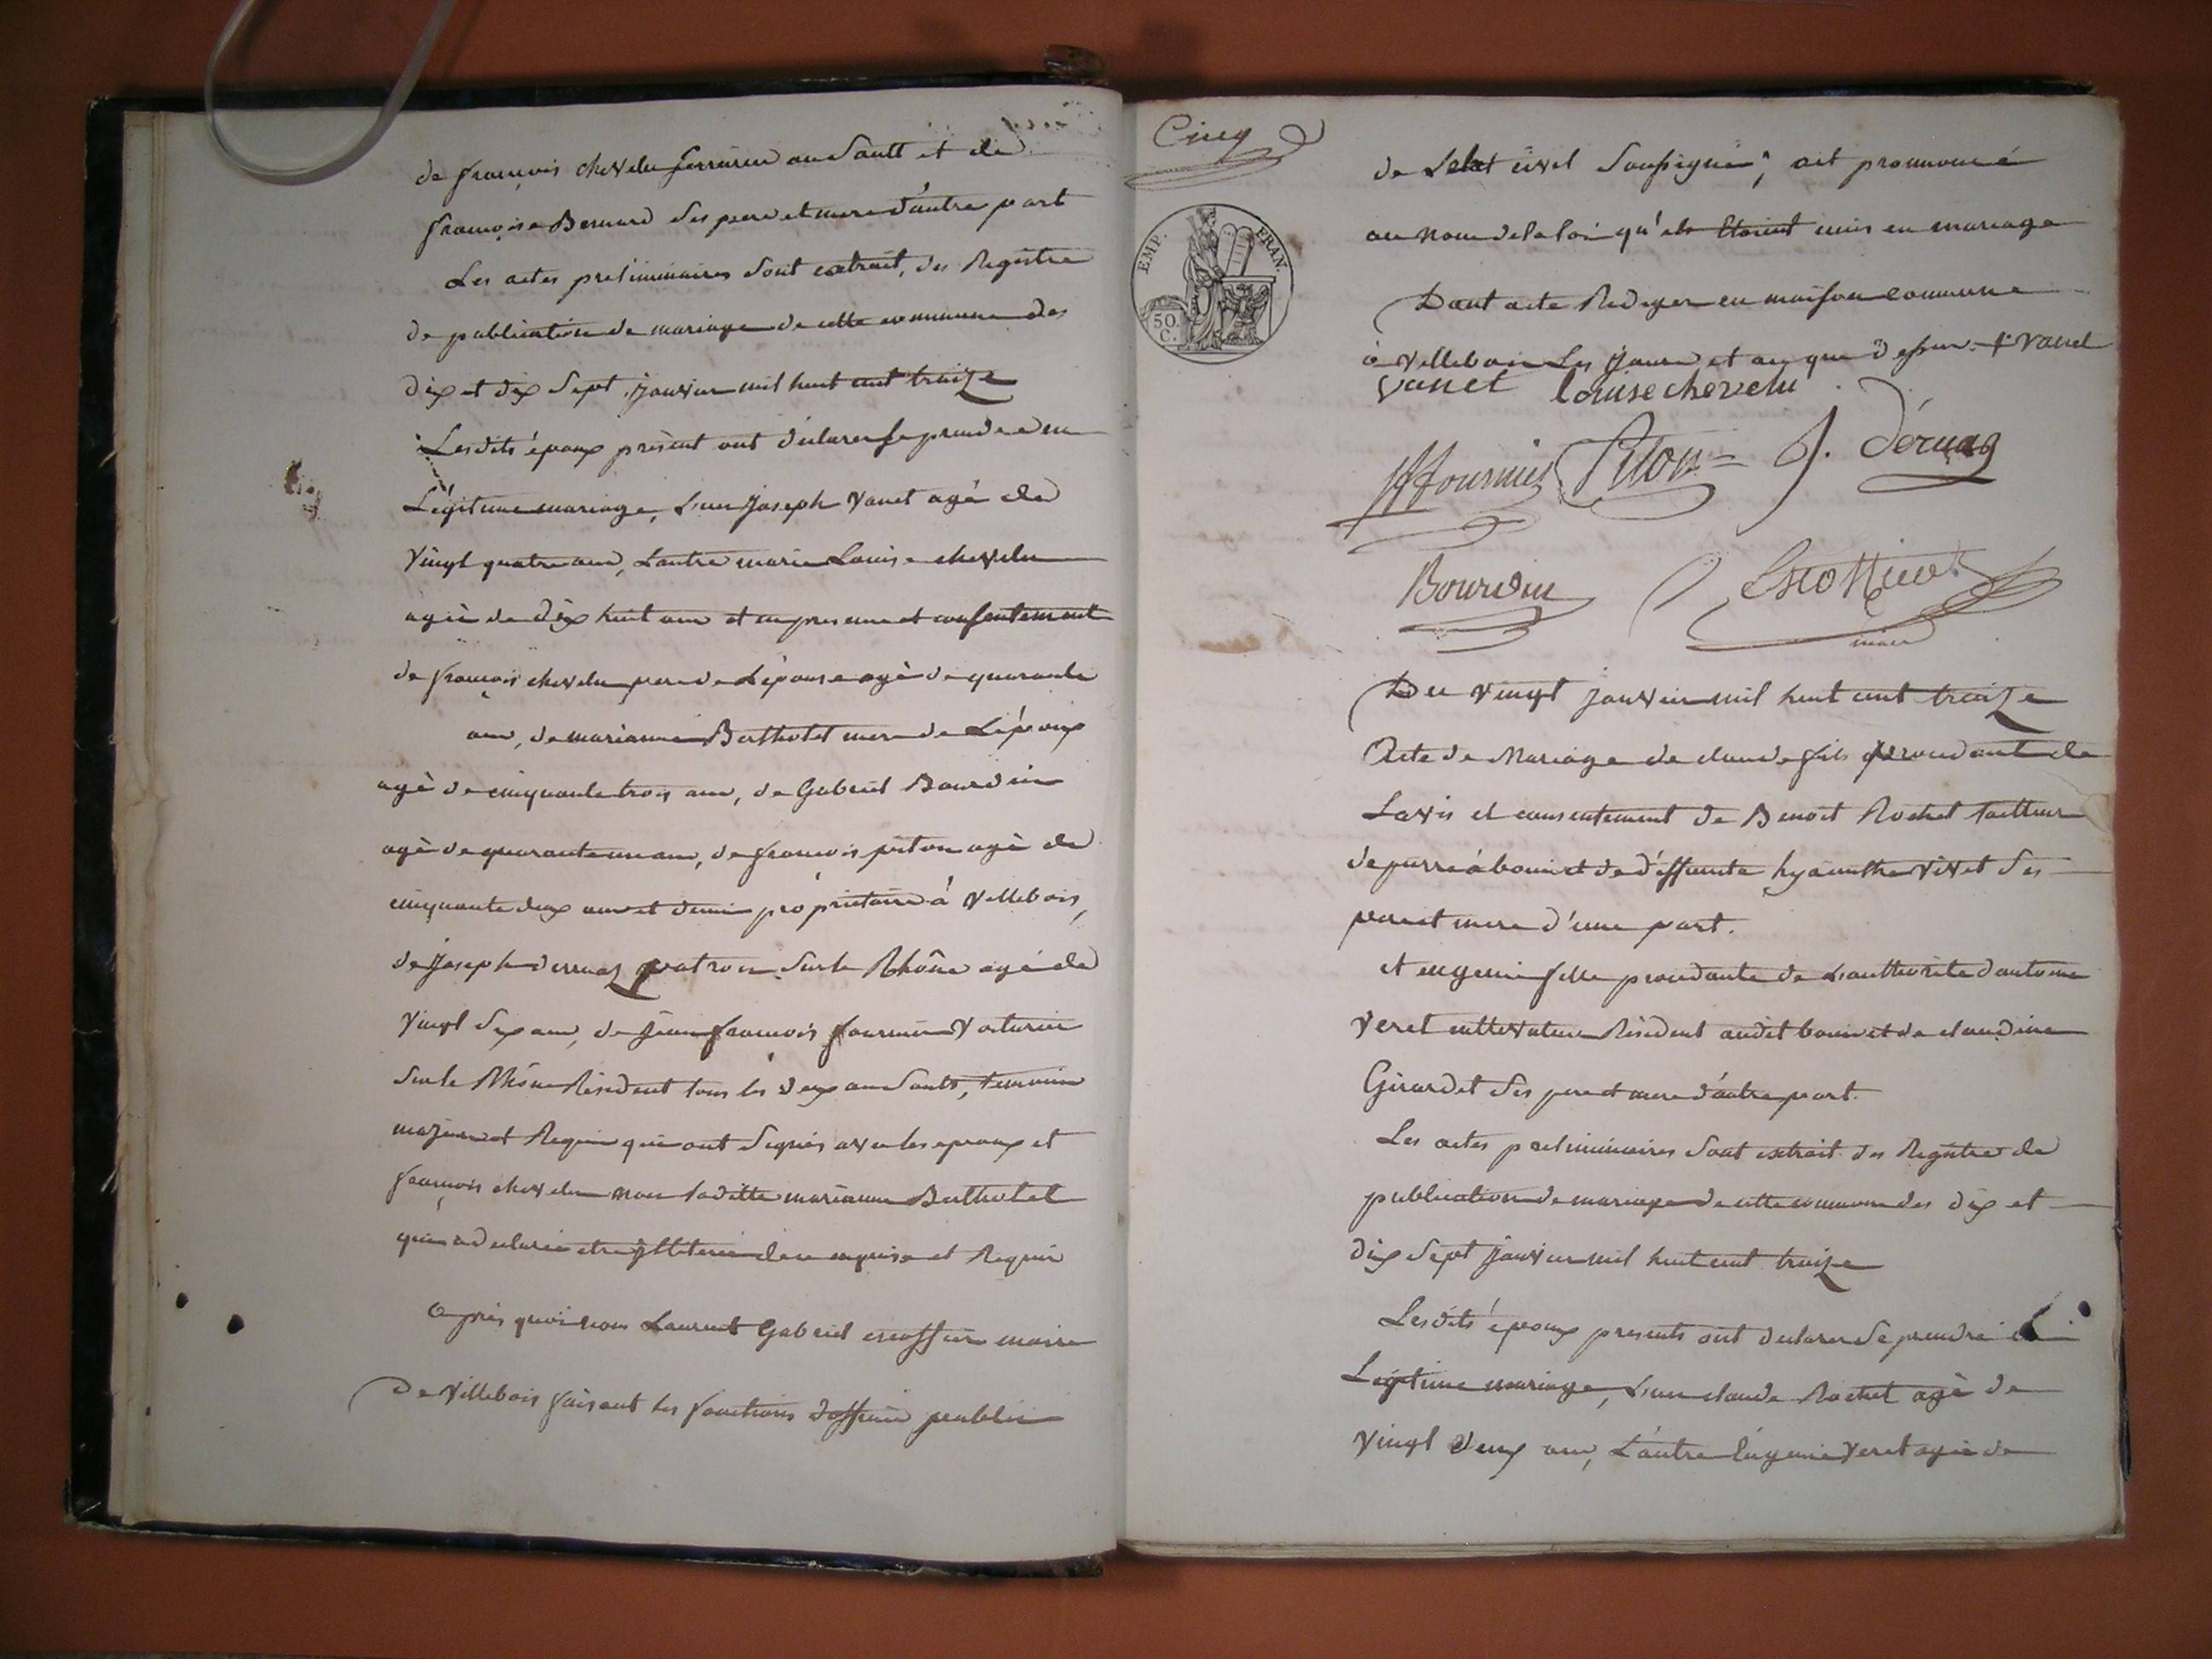 de françois chevelu serrurier au Sault et de
françoise Bernard ses pere et mere d'autre part
Les actes preliminaires sont extrait, des Registre
de publication de mariage de cette commune des
dix et dix Sept janvier mil huit cent traize
Lesdits époux présent ont déclarer se prendre en
Légitime mariage, L'un joseph Vanet agé de
Vingt quatre ans, Lautre marie Louise chevelu
agée de dix huit ans et en presence et consentement
de françois chevelu pere de L'épouse agé de quarante
ans, de marianne Berthelet mere de L'époux
agé de cinquante trois ans, de Gabriel Bourdin
agé de quarante un ans, de françois piton agé de
cinquante deux ans et demi propriétaire à Villebois,
de joseph derruaz patron sur le Rhône agé de
Vingt six ans, de jean françois fournier Voiturier
sur le Rhône Résident tous les deux au Sault, temoins
majeurs et Requis qui ont signés avec les epoux et
françois chevelu non laditte marianne Berthelet
qui a declarée etre illiterée de ce enquise et Requise
après quoi nous Laurent Gabriel escoffier maire
de Villebois faisant les fonctions d'officier public
Cinq
EMP. FRAN.
50.
C.
de L'etat civil Soussigné, ait prononcé
au nom de la loi qu'ils Etoient unis en mariage
Dont acte Rediger en maison commune
à Villebois Les jours et an que dessus. + vanel
vanet louise chevelu
JF fournier Piton J. déruaz
Bourdin Escoffier
maire
Du vingt janvier mil huit cent traize
Acte de Mariage de claude fils procedant de
Lavis et consentement de Benoit Rochet tailleur
de pierre à bouis et de déffunte hyacinthe Vivet ses
pere et mere d'une part.
et eugenie fille procedante de Lauthorité dantoine
Veret cultivateur Résident audit bouis et de claudine
Girardet ses pere et mere d'autre part.
Les actes preliminaires sont extrait des Registre de
publication de mariage de cette commune des dix et
dix Sept janvier mil huit cent traize
Lesdits époux presents ont declarer se prendre
Légitime mariage, L'un claude Rochet agé de
Vingt deux ans, L'autre Eugenie Veret agée de